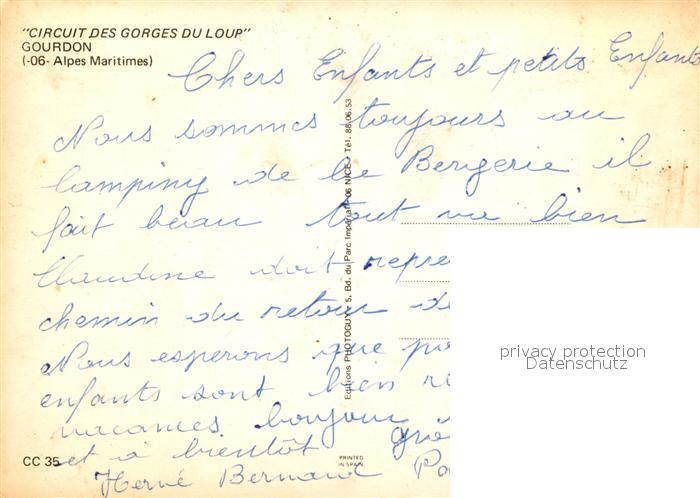 "CIRCUIT DES GORGES DU LOUP"
GOURDON
(-06- Alpes Maritimes)
Chers Enfants et petits Enfants
Nous sommes toujours au
camping de la Bergerie il
fait beau tout va bien
Claudine doit repre
chemin du retour
Nous esperons que
enfants sont bien
vacances bonjour
et à bientôt
Hervé Bernard
Editions PHOTOGUY 5, Bd. du Parc Impérial-06 NICE Tél. 88.06.53
privacy protection
Datenschutz
CC 35
PRINTED
IN SPAIN